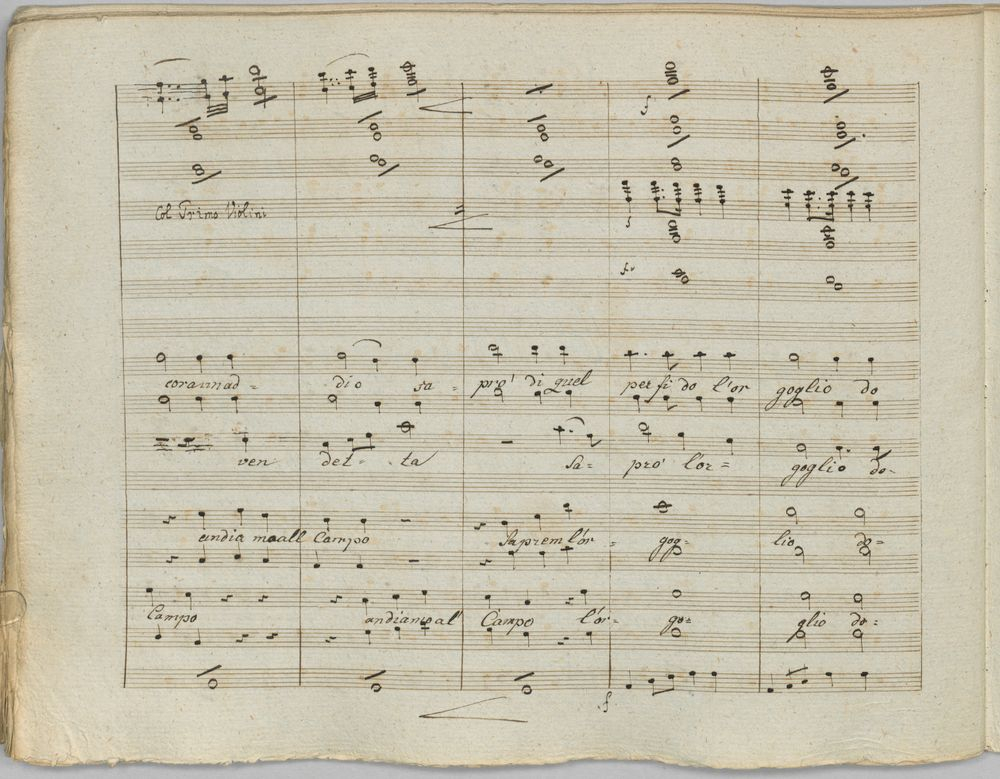 Col Primo Violini
corannad = dio sa = pro' di quel perfido l'or goglio do
ven det - ta sa = pro' l'or = goglio do -
andia moall Campo Saprem l'or = gog = lio do =
Campo andiamo al' Campo l'or = go = glio do =